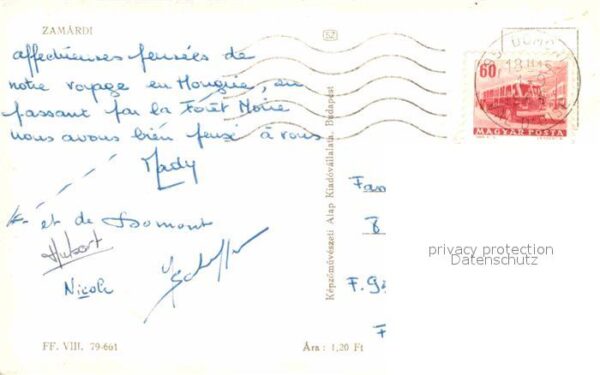 ZAMÁRDI
SZ
affectueuses pensées de
notre voyage en Hongrie, en
passant par la Forêt Noire
nous avons bien pensé à vous
Mady
et de Domont
Hubert
Nicole
FF. VIII. 79-661
Ára: 1,20 Ft
Képzőművészeti Alap Kiadóvállalata, Budapest
60f
MAGYAR POSTA
F.
privacy protection
Datenschutz